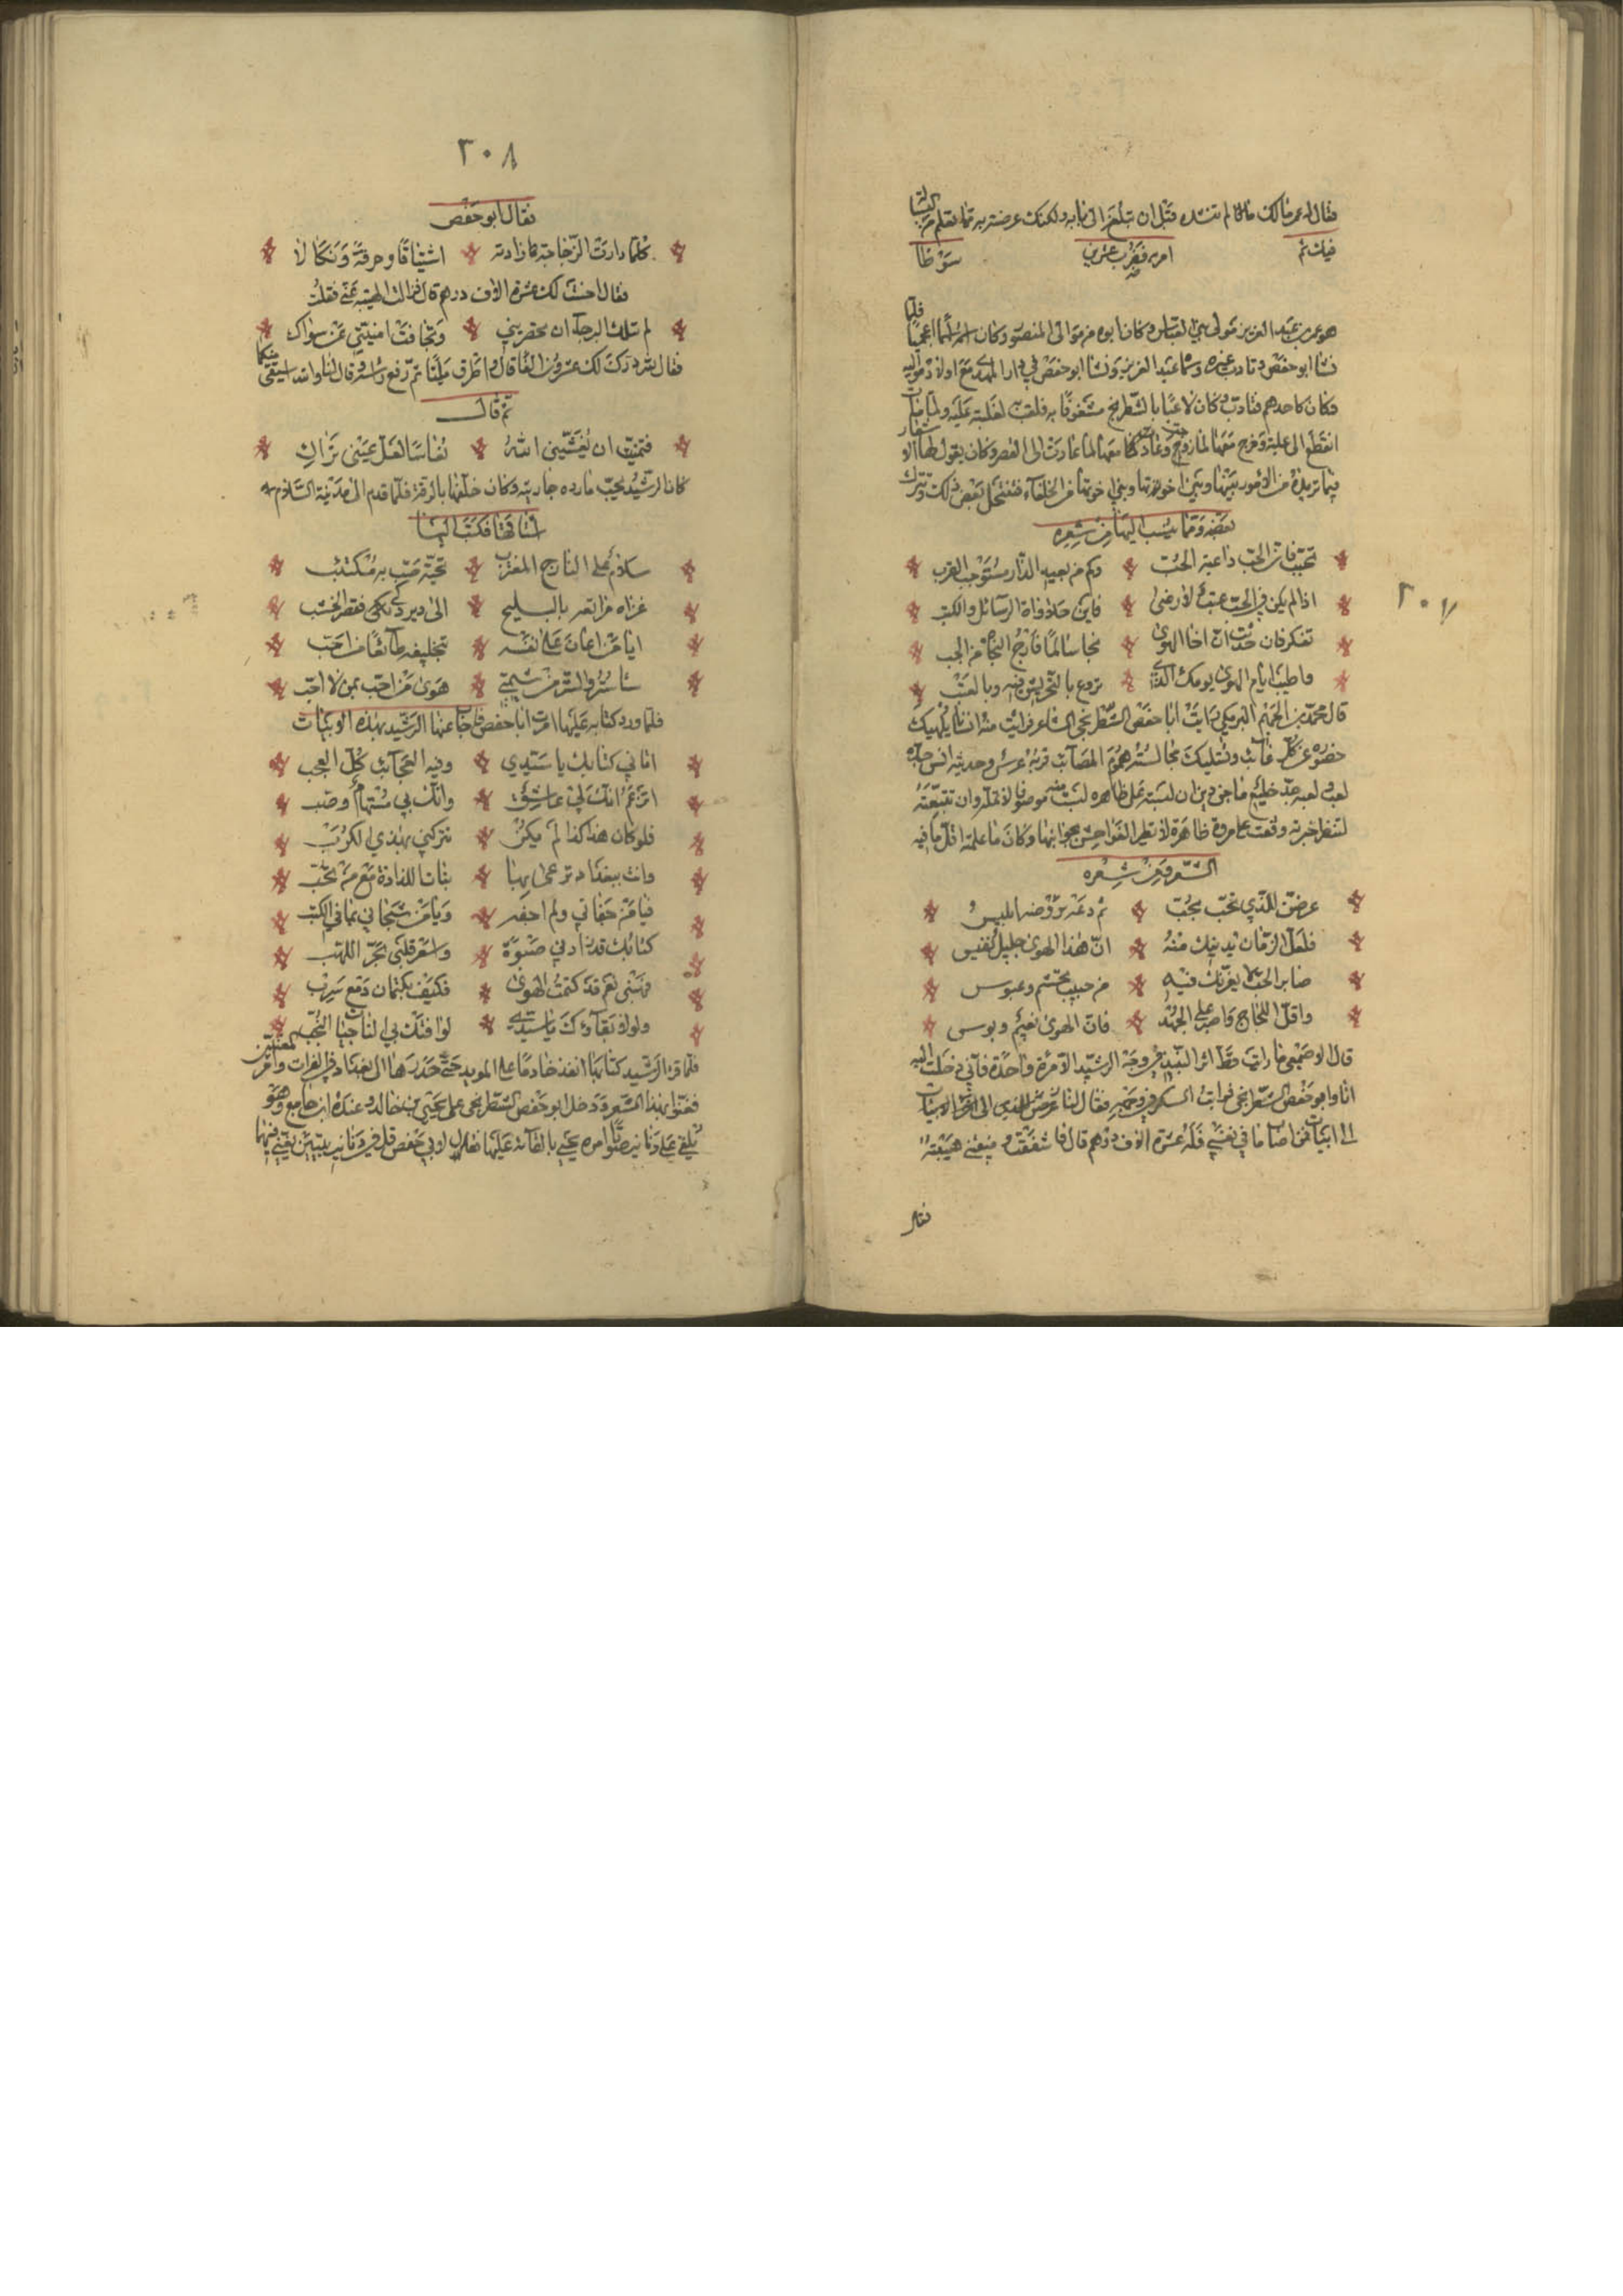 فقال له عمر مالك قال لم تنشده قبل ان تبلغ الى بابه ولكنك عرضته به تما تعلم من
فيك ثم امر به فضرب عشرين سوطا
فلما
هو عمر بن عبد العزيز مولى بني العباس وكان ابوه من موالى المنصور وكان اسمه اسما اعجميا
نشا ابو حفص وتادب غيره وسماه عبد العزيز ونشا ابو حفص في دار المهدي مع اولاد مواليه
وكان كاحدهم فتادب وكان لاعبا بالشطرنج مشغوفا به فلقب به لغلبته عليه ولما مات
انقطع الى علية وخرج معها لما زوجت وعاد معها لما عادت الى القصر وكان يقول لها الاشعار
فيما تريده من الامور بينها وبين اخوتها وبني اخوتها من الخلفاء فتنتحل بعض ذلك وتترك
بعضه ومما ينسب اليها من شعره
تحبب فان الحب داعية الحب وكم من بعيد الدار مستوجب القرب
اذا لم يكن في الحب عتب ولا رضى فاين حلاوات الرسائل والكتب
تفكر فان حدثت ان اخا الهوى نجا سالما فارج النجاة من الحب
واطيب ايام الهوى يومك الذي تروع بالتحريش فيه وبالعتب
قال محمد بن الجهم البرمكي رايت ابا حفص الشطرنجي الشاعر فرايت منه انسانا يلهيك
حضوره عن كل غائب وتسليك مجالسته هموم المصائب قربه عرس وحديثه انس جده
لعب ولعبه جد خليع ماجن دين ان لبسته على ظاهره لبست موموقا لا تمله وان تتبعته
لتنظر خبرته وقعت على مروة ظاهرة لا تطير الفواحش بجنباتها وكان ما علمته اقل ما فيه
الشعر ومن شعره
عرضن للذي تحب بحب ثم دعه يروضه ابليس
فلعل الزمان يدنيك منه ان هذا الهوى جليل نفيس
صابر الحب لا يغرنك فيه من حبيب تجشم وعبوس
واقل اللجاج واصبر على الجهد فان الهوى نعيم وبوس
قال الاصمعي ما رايت قط اثر النبيذ في وجه الرشيد الا مرة واحدة فاني دخلت اليه
انا وابو حفص الشطرنجي فرايت السكر في وجهه فقال لنا
الى ابيات فمن اصاب ما في نفسي فله عشرة الاف درهم قال فاشفقت ومنعتني هيبته
فقال
٢٠٧
٢٠٨
فقال ابو حفص
كلما دارت الزجاجة زادته اشتياقا وحرقة وبكاء لا
فقال احسنت لك عشرة الاف درهم قال فزالت الهيبة عني فقلت
لم تنلك الرجاء ان تحضريني وتجافت امنيتي عن سواك
فقال لله درك لك عشرون الفا قال واطرق مليا ثم رفع راسه وقال انا والله اشعر منكما
ثم قال
فتمنيت ان يغشيني الله نعاسا لعل عيني تراك
كان الرشيد يحب مارده جاريته وكان خلفها بالرقة فلما قدم الى مدينة السلام
اشتاقها فكتب اليها
سلام على النازح المغترب تحية صب به مكتئب
غزال مراتعه بالبليخ الى دير زكى فقصر الخشب
ايا من اعان على نفسه بتخليفه طائعا من احب
ساستر والستر من شيمتي هوى من احب بمن لا احب
فلما ورد كتابه عليها امرت ابا حفص فاجاب عنها الرشيد بهذه الابيات
اتاني كتابك يا سيدي وفيه العجائب كل العجب
اتزعم انك لي عاشق وانك بي مستهام وصب
فلو كان هذا كذا لم يكن تتركني نهبة للكرب
وانت ببغداد ترعى بها نبات اللذاذة مع من تحب
فيا من جفاني ولم اجفه ويا من شجاني بما في الكتب
كتابك قد زادني صبوة واسعر قلبي بحر اللهب
فهبني نعم قد كتمت الهوى فكيف بكتمان دمع سرب
ولولا بقاؤك يا سيدي لوافتك بي الناجيات النجب
فلما قرا الرشيد كتابها انفذ خادما على البريد حتى حدرها الى بغداد في الفرات وامر المغنين
فغنوا بهذا الشعر ودخل ابو حفص الشطرنجي على يحيى بن خالد وعنده ابن جامع وهو
يلقي على دنانير صوتا امره يحيى بالقائه عليها فقال لابي حفص قل في دنانير بيتين يغني فيهما